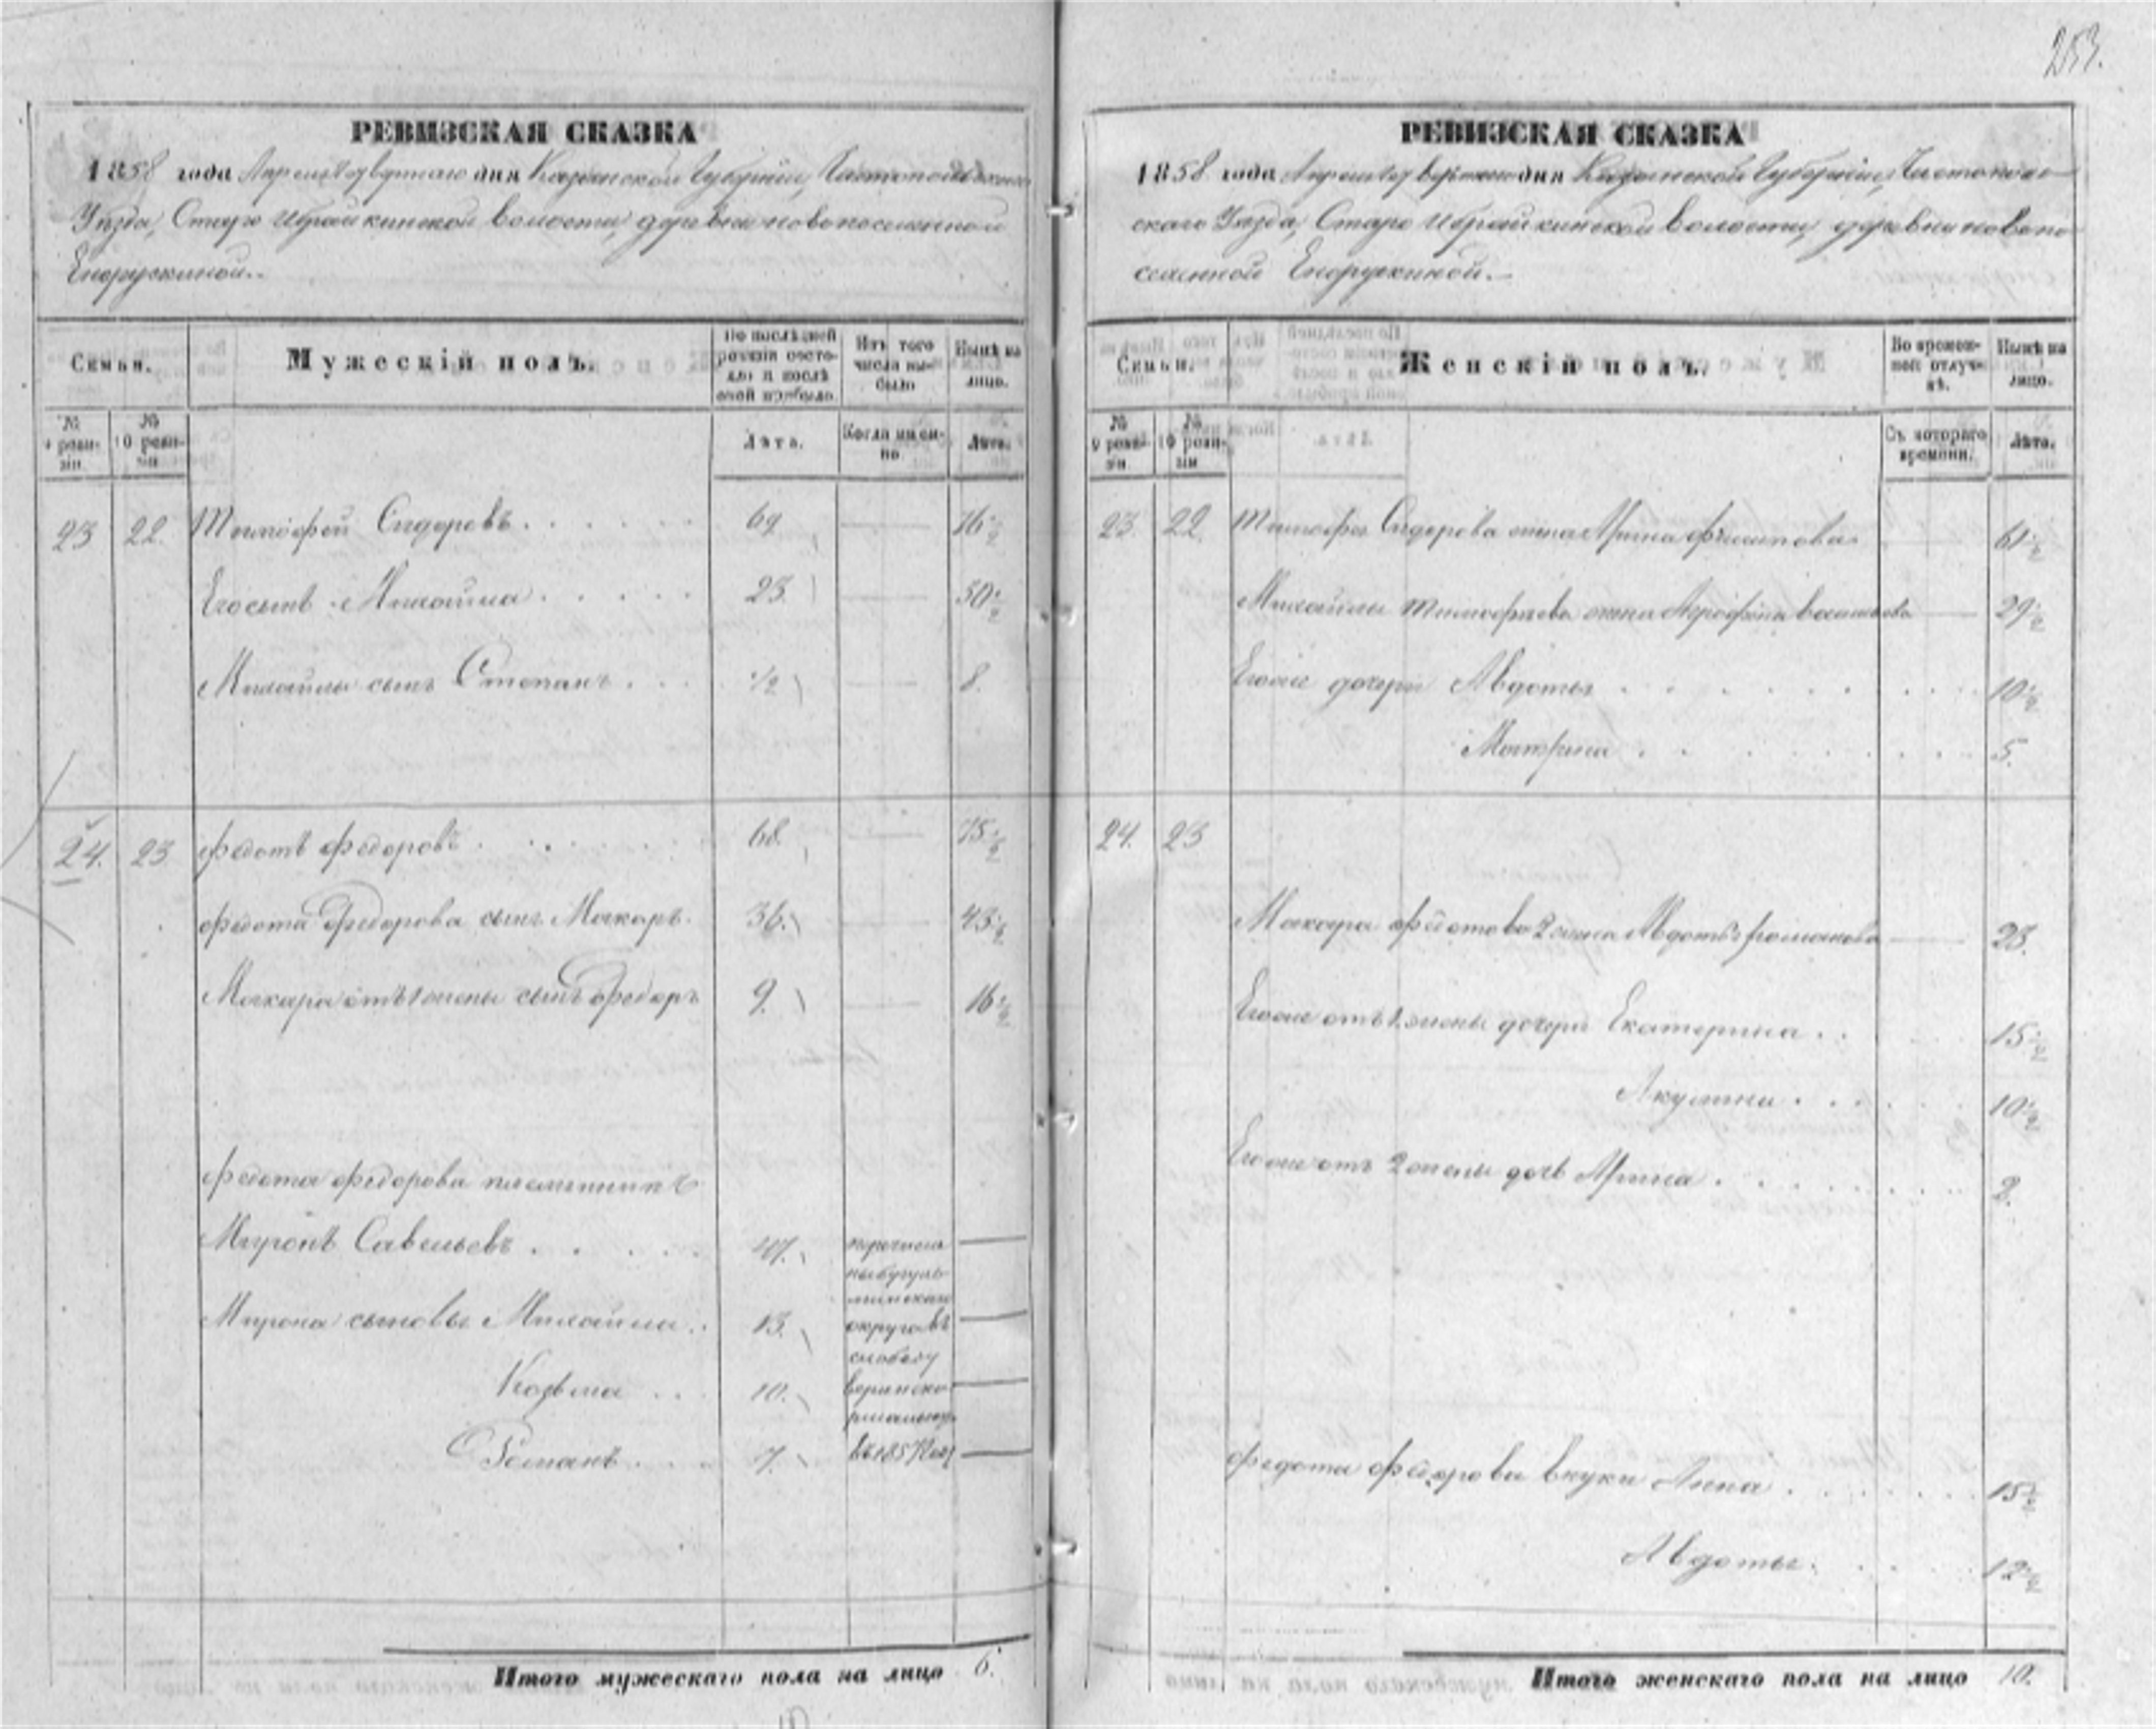 253.
РЕВИЗСКАЯ СКАЗКА
1858 года Апреля дня Казанской Губернiи, Чистопольскаго
Уѣзда, Старо Ибрайкинской волости, деревни новопоселенной
Егоркиной.
Семьи.
Мужескiй полъ.
По послѣдней ревизiи состояло и послѣ оной прибыло.
Изъ того числа выбыло
Нынѣ на лицо.
№ 9 ревизiи.
№ 10 ревизiи
Лѣта.
Когда именно
Лѣта.
23 22. Тимофей Сидоровъ 69 76 1/2
Его сынъ Михайла 23 30 1/2
Михайлы сынъ Степанъ 1/2 8.
24. 23 Федотъ Федоровъ 68 75 1/2
Федота Федорова сынъ Макаръ 36. 43 1/2
Макара отъ 1 жены сынъ Федоръ 9. 16 1/2
Федота Федорова племянникъ
Миронъ Савельевъ 47.
Мирона сыновья Михайла 13.
Козьма 10.
Романъ 7.
перечислены бугульминскаго округа въ слободу въ 1857 году
Итого мужескаго пола на лицо 6.
РЕВИЗСКАЯ СКАЗКА
1858 года Апреля дня Казанской Губернiи, Чистопольскаго
Уѣзда, Старо Ибрайкинской волости, деревни новопоселенной
Егоркиной.
Семьи.
Женскiй полъ.
Во временной отлучкѣ.
Нынѣ на лицо.
№ 9 ревизiи.
№ 10 ревизiи
Съ котораго времени.
Лѣта.
23. 22. Тимофея Сидорова жена Арина Филипова 61 1/2
Михайлы Тимофеева жена Васильева 29 1/2
Его же дочери Авдотья 10 1/2
Матрена 5.
24. 23
Макара Федотова 2 жена Авдотья Романова 23.
Его же отъ 1 жены дочери Екатерина 15 1/2
Акулина 10 1/2
Его же отъ 2 жены дочь Арина 2.
Федота Федорова внуки Анна 15 1/2
Авдотья 12 1/2
Итого женскаго пола на лицо 10.